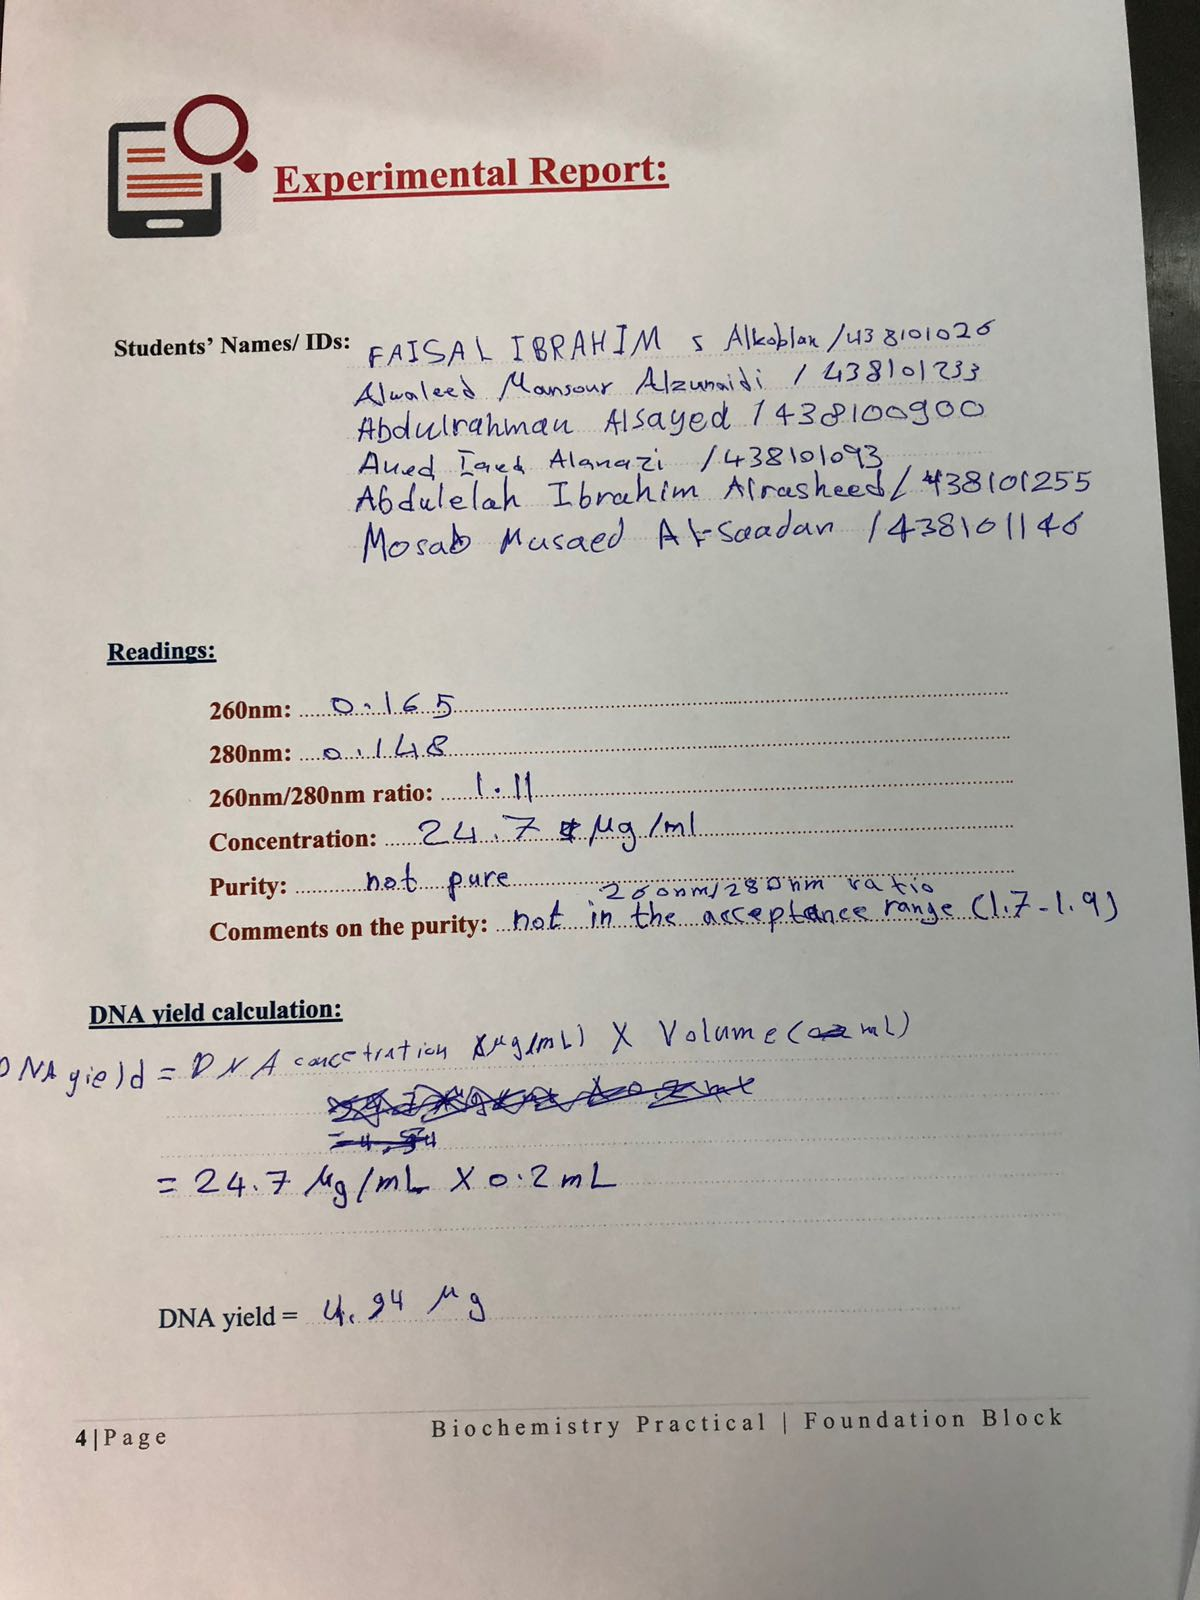 Experimental Report:
Students' Names/ IDs: FAISAL IBRAHIM S Alkoblan /438101026
Alwaleed Mansour Alzunaidi / 438101233
Abdulrahman Alsayed / 438100900
Alanazi / 438101093
Abdulelah Ibrahim Alrasheed / 438101255
Mosab Musaed Al-Saadan / 438101146
Readings:
260nm: 0.165
280nm: 0.148
260nm/280nm ratio: 1.11
Concentration: 24.7 μg/ml
Purity: not pure
260nm/280nm ratio
Comments on the purity: not in the acceptance range (1.7-1.9)
DNA yield calculation:
DNA yield = DNA (μg/mL) X Volume (mL)
= 24.7 μg/mL X 0.2 mL
DNA yield = 4.94 μg
4|Page
Biochemistry Practical | Foundation Block